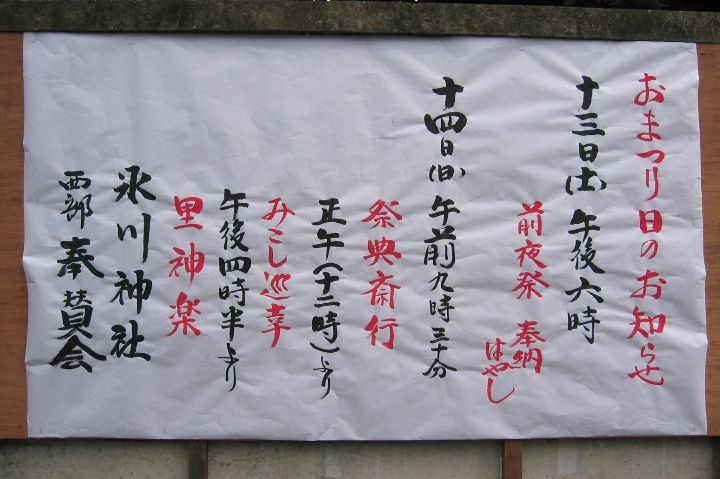 おまつり日のお知らせ
十三日(土)午後六時
前夜祭 奉納
はやし
十四日(日)午前九時三十分
祭典斎行
正午(十二時)より
みこし巡幸
午後四時半より
里神楽
氷川神社
西部 奉賛会